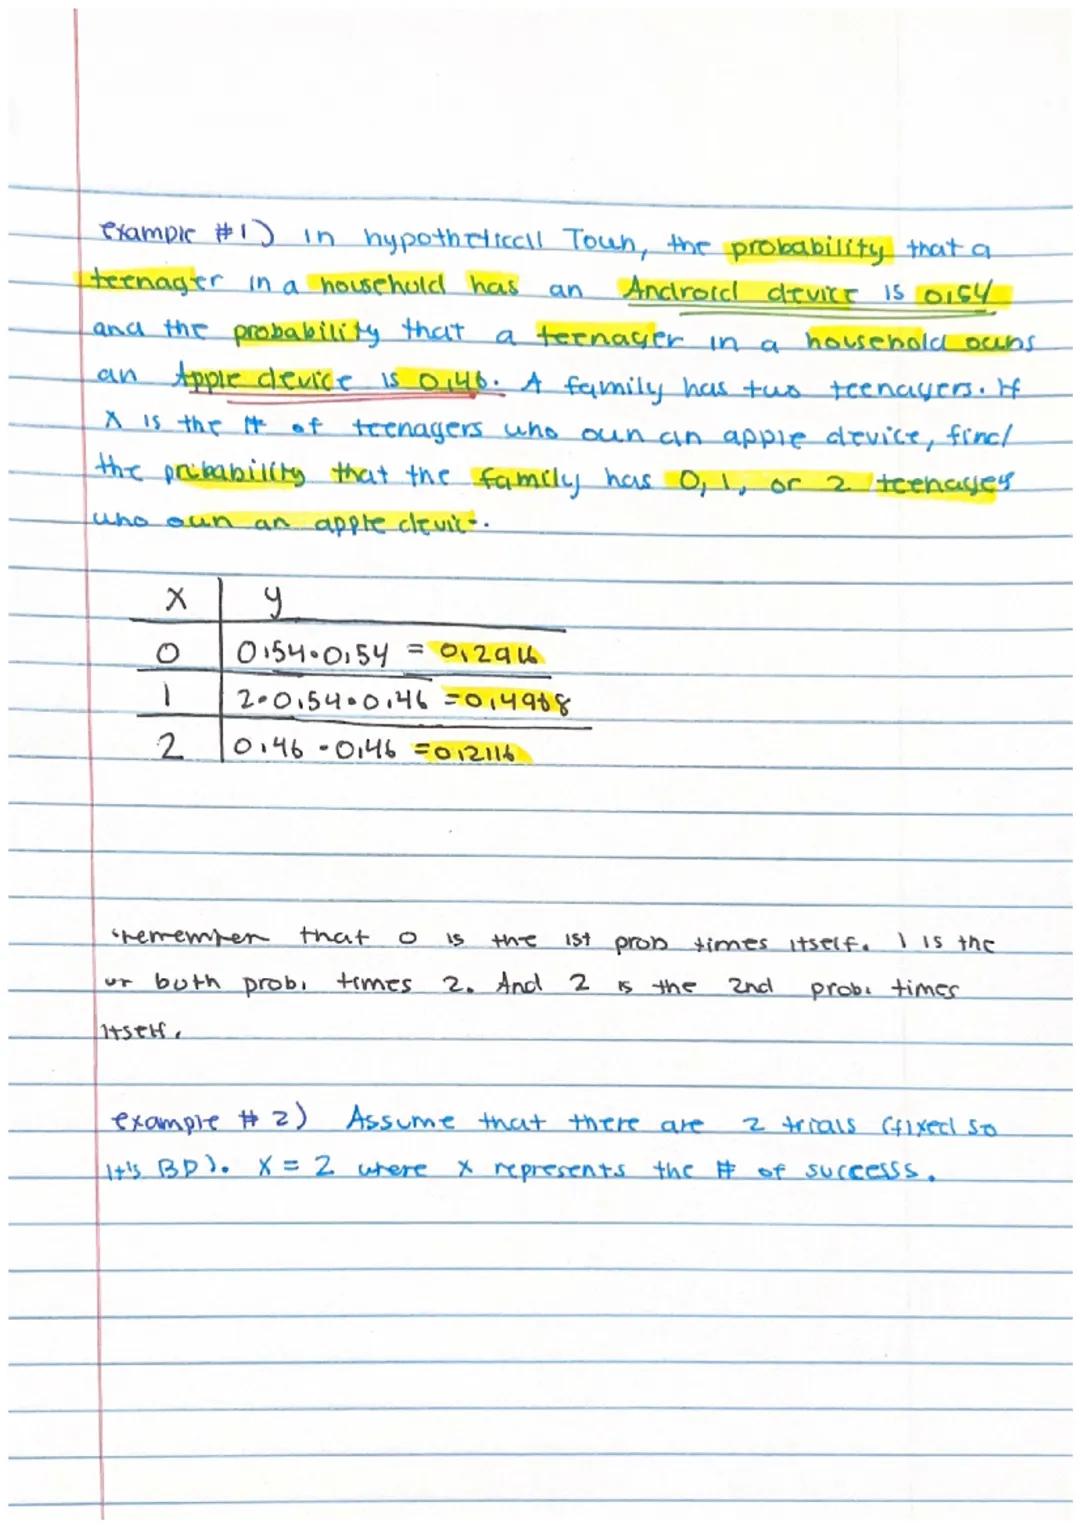 example #1) in hypotheticall Town, the probability that a
teenager in a household has an Android device is 0.54
and the probability that a teenager in a household owns
an Apple device is 0.46. A family has two teenagers. If
X is the # of teenagers who own an apple device, find
the probability that the family has 0, 1, or 2 teenagers
who own an apple device.
X y
0 0.54•0.54 = 0.2916
1 2•0.54•0.46 = 0.4968
2 0.46•0.46 = 0.2116
remember that 0 is the 1st prob times itself. 1 is the
or both prob. times 2. And 2 is the 2nd prob. times
itself.
example #2) Assume that there are 2 trials (fixed so
it's BD). X = 2 where X represents the # of successs.